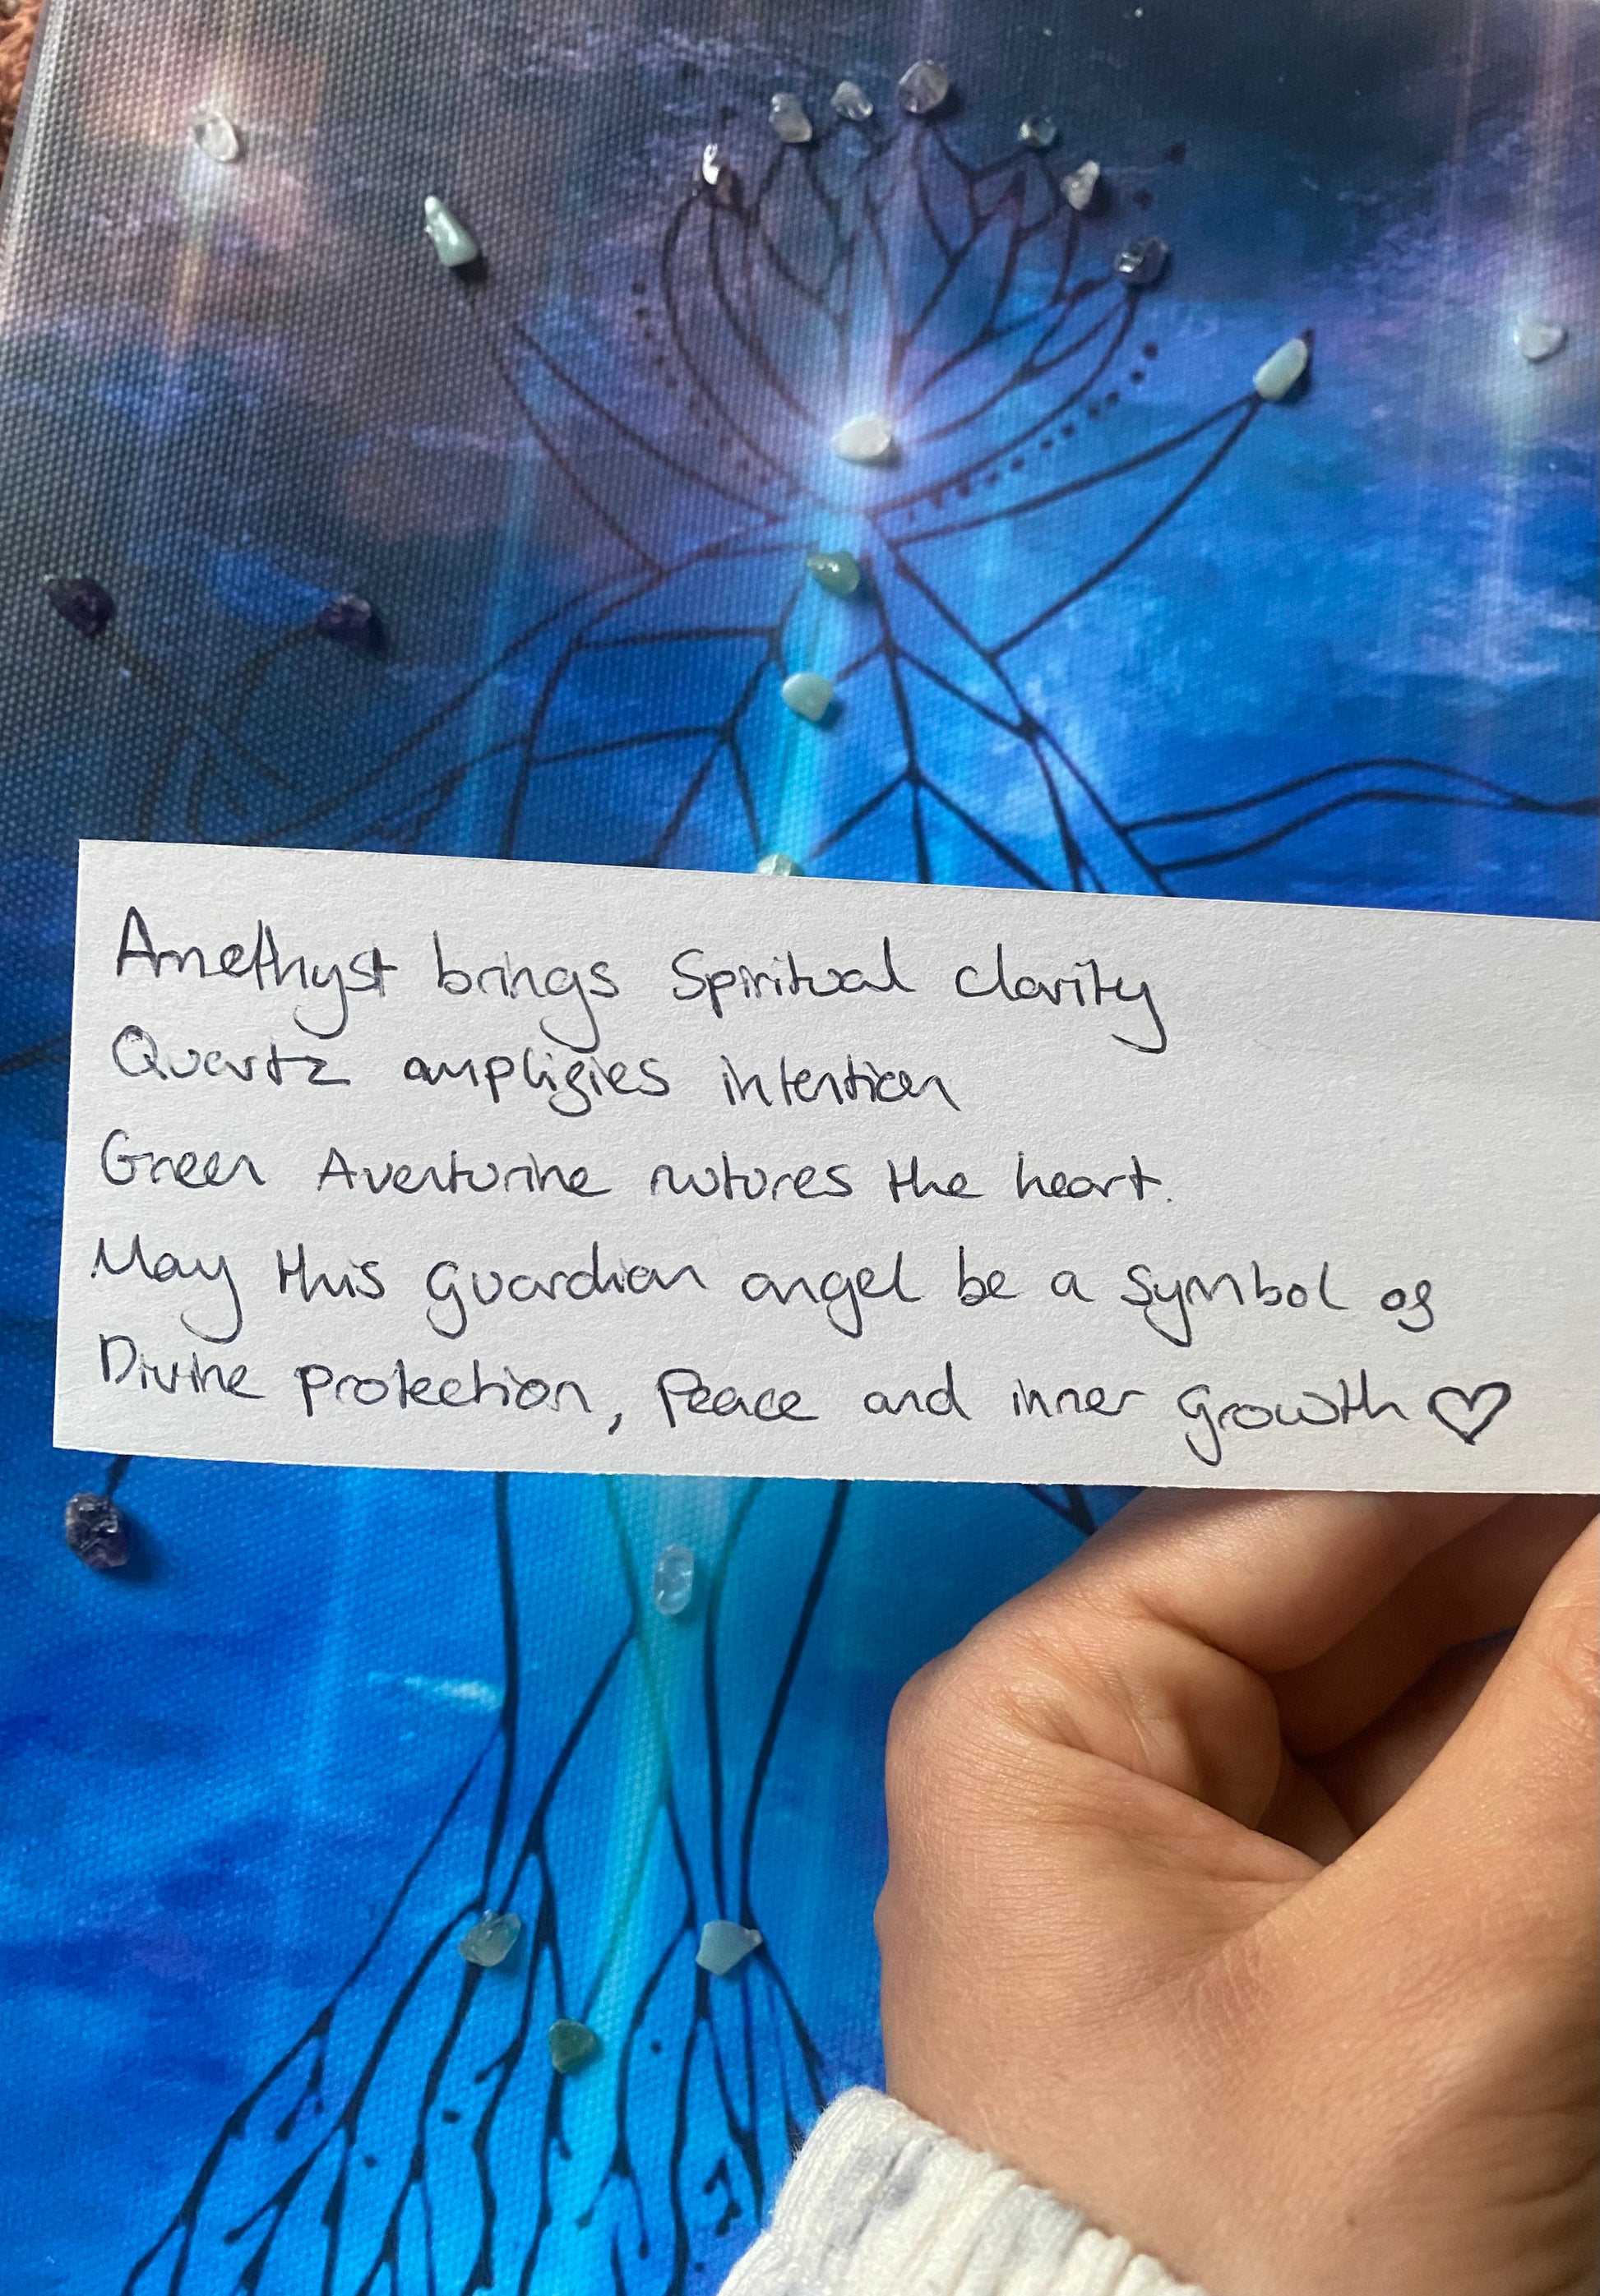 Amethyst brings Spiritual clarity
Quartz amplifies intention
Green Aventurine nutures the heart.
May this guardian angel be a symbol of
Divine protection, Peace and inner growth ♡